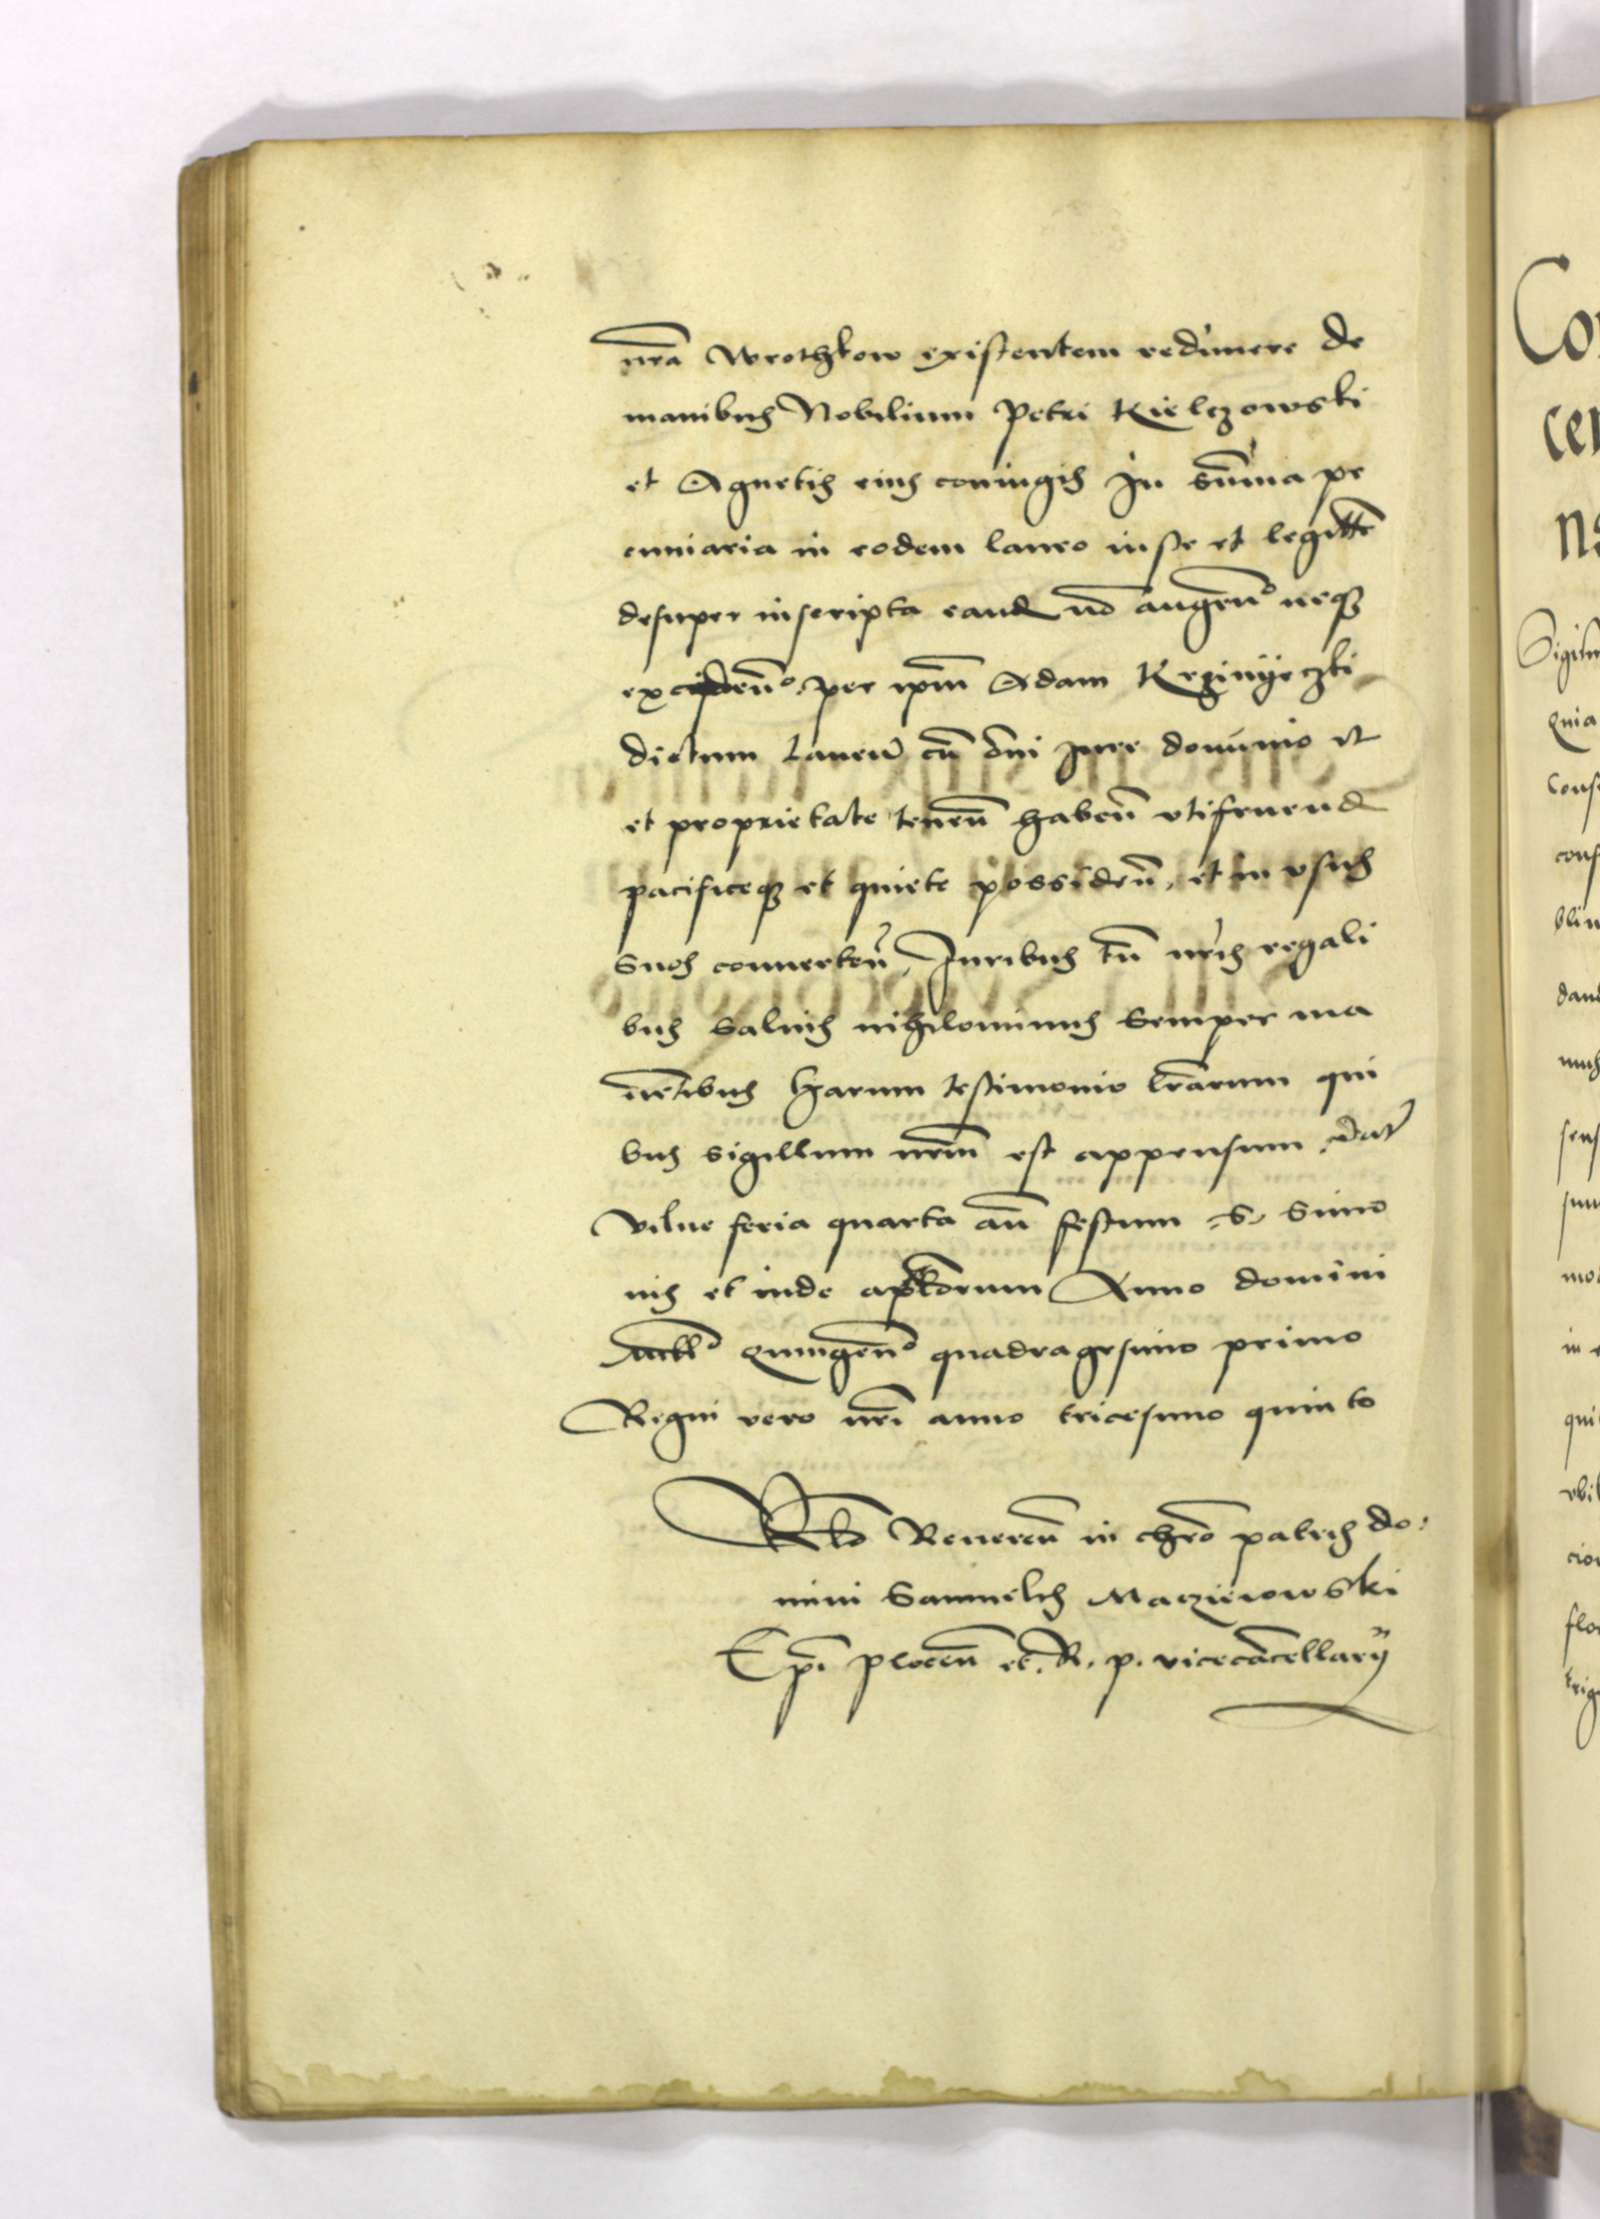 nrã Wrothkow existentem redimere de
manibus Nobilium Petri Kielczowski
et Agnetis eius coniugis In sũma pe
cuniaria in eodem laneo iuste et legittẽ
desuper inscripta eand nõ augeñ neqz
exceden̄. per ipm̃ Adam
dictum laneũ cũ õni iure dominio et
et proprietate teneñ habeñ vtifruend
pacificeqz et quiete possideñ, et in vsus
suos conuerteñ, Iuribus tñ nris regali
bus saluis nihilominus semper ma
neñtibus harum testimonio lrãrum qui
bus sigillum nrm̃ est appensum, Dat
Vilne feria quarta añ festum .S. Simo
nis et iude aplõrum Anno domini
Mill̃o Quingeñ quadragesimo primo
Regni vero nri anno tricesimo quinto
Rlõ Reuereñ in chrõ patris do:
mini Samuelis Macziewowski
Epi. ploceñ et. R. p. vicecãcellarij
Co
cer
Sigism
quia
cons
conf
blim
dand
sens
in
qui
vbil
cion
flor
trig